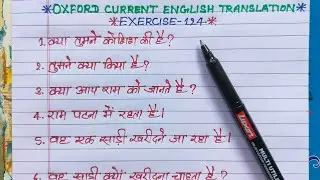 *OXFORD CURRENT ENGLISH TRANSLATION*
*EXERCISE-124*
1. क्या तुमने कोशिश की है?
2. तुमने क्या किया है?
3. क्या आप राम को जानते हैं?
4. राम पटना में रहता है।
5. वह एक साड़ी खरीदने जा रहा है।
6. वह साड़ी क्यों खरीदना चाहता है?